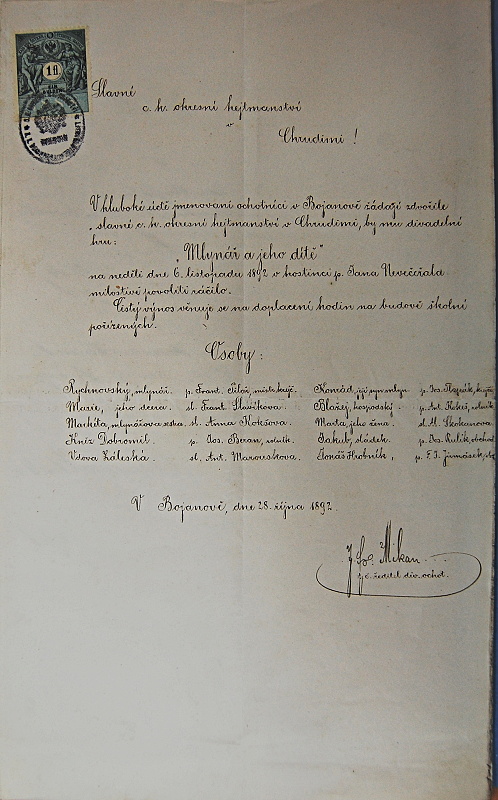 1 fl.
Slavné
c. k. okresní hejtmanství
v
Chrudimi!
V hluboké úctě jmenovaní ochotníci v Bojanově žádají zdvořile
slavné c. k. okresní hejtmanství v Chrudimi, by mu divadelní
hru:
„Mlynář a jeho dítě"
na neděli dne 6. listopadu 1892 v hostinci p. Jana Nevečeřala
milostivě povoliti ráčilo.
Čistý výnos věnuje se na doplacení hodin na budově školní
pořízených.
Osoby:
Rychnovský, mlynář. p. Frant. Konrád, p. Jos.
Marie, jeho dcera. sl. Frant. Slavíkova. Blažej, hospodský. p. Ant.
Markéta, mlynářova sestra. sl. Anna Marta, jeho žena. sl. M. Skokanova.
Kněz Dobromil. p. Jos. Beran, rolník. Jakub, sládek. p. Jos. Kulík, obchod
Vdova Záleská. sl. Ant. Marouskova. Jonáš Hrobník, p. F. J. Jirnásek,
V Bojanově, dne 28. října 1892.
Mikan
t. č. ředitel div. ochot.